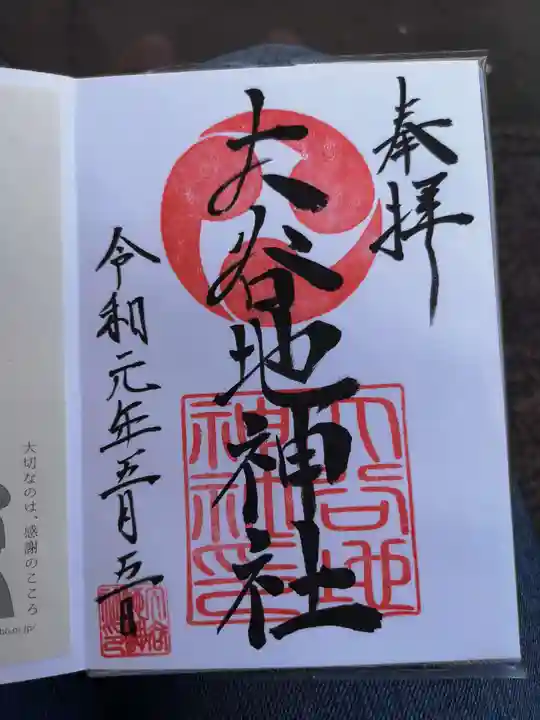 奉拝
大谷地神社
大谷地
神社印
令和元年五月五日
大切なのは、感謝のこころ
.or.jp/